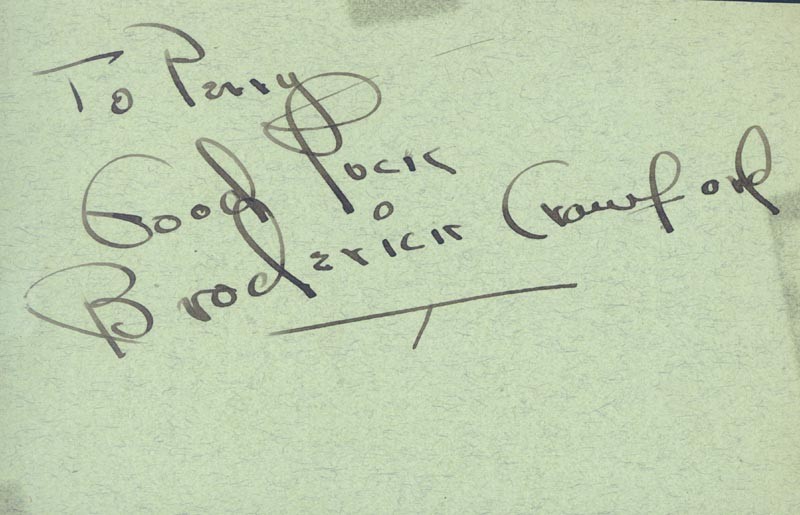 To Perry
Good Luck
Broderick Crawford